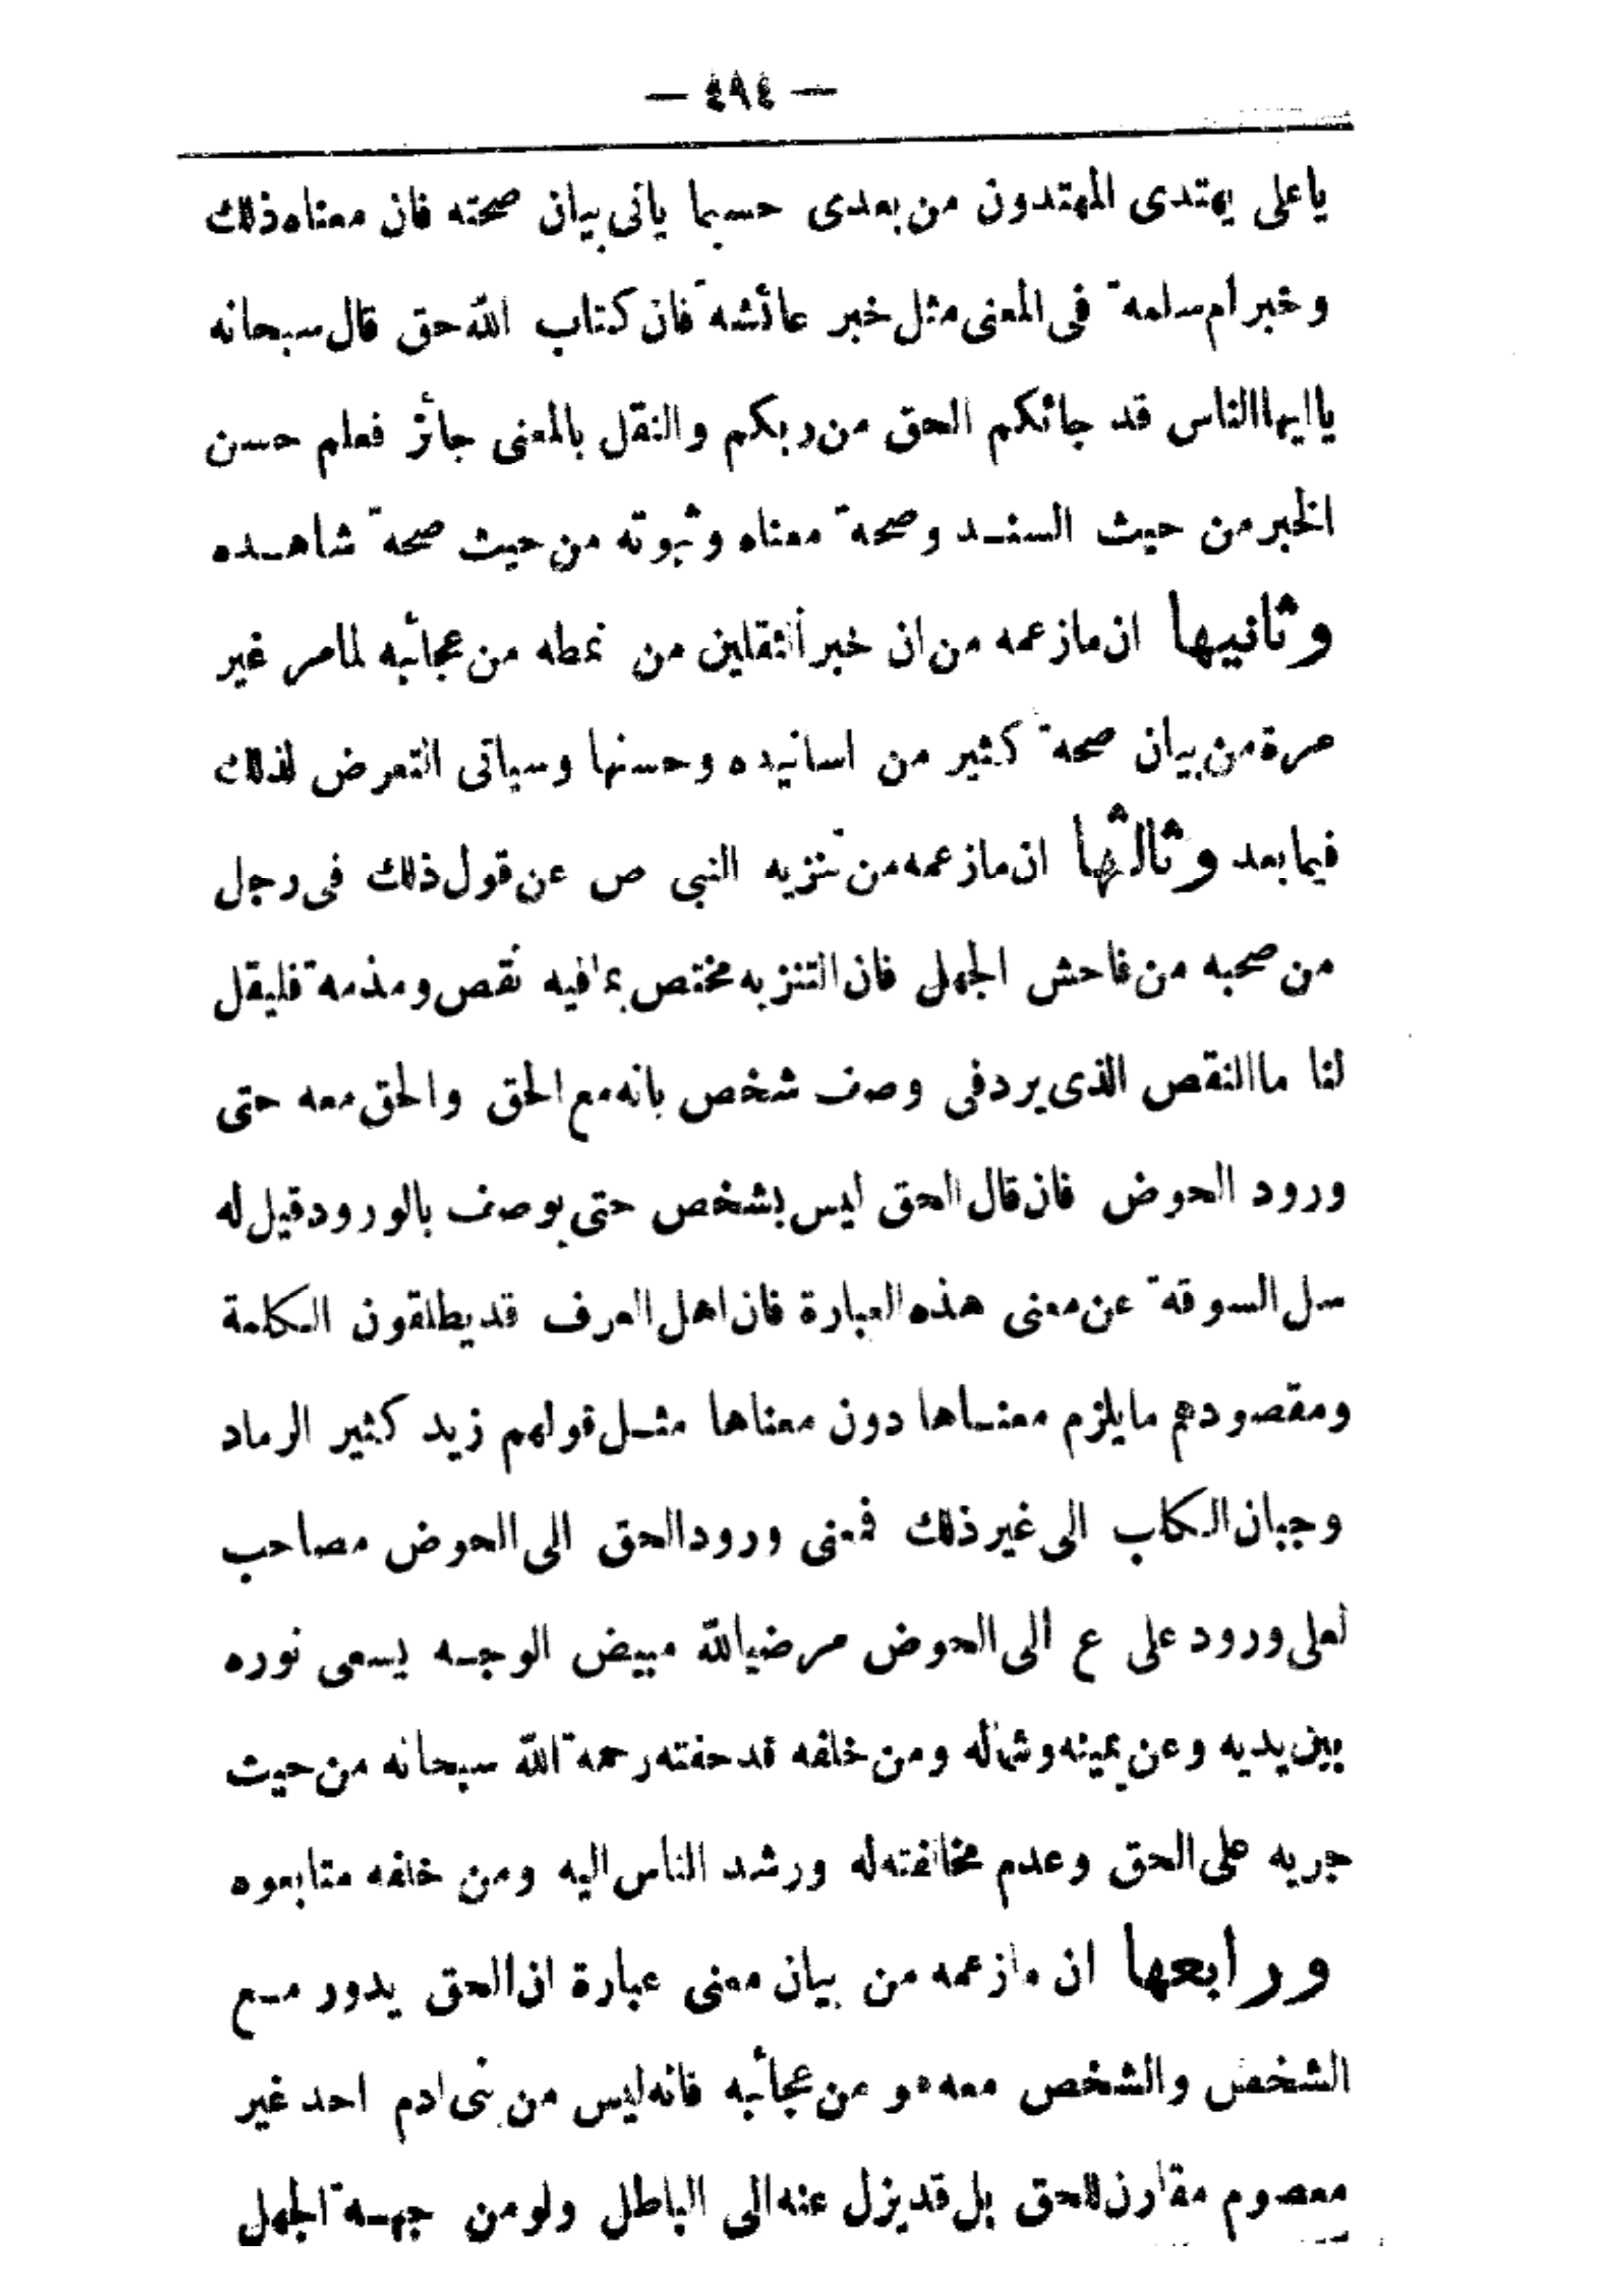 — ٤٩٤ —
يا على يهتدى المهتدون من بعدى حسبما ياتى بيان صحته فان معناه ذلك
وخبر ام سلمة فى المعنى مثل خبر عائشة فان كتاب الله حق قال سبحانه
يا ايها الناس قد جائكم الحق من ربكم والنقل بالمعنى جائز فعلم حسن
الخبر من حيث السند وصحة معناه وثبوته من حيث صحة شاهده
وثانيها ان ما زعمه من ان خبر الثقلين من نمطه من عجائبه لما مر غير
مرة من بيان صحة كثير من اسانيده وحسنها وسياتى التعرض لذلك
فيما بعد وثالثها ان ما زعمه من تنزيه النبى ص عن قول ذلك فى رجل
من صحبه من فاحش الجهل فان التنزيه مختص بما فيه نقص ومذمة فليقل
لنا ما النقص الذى يرد فى وصف شخص بانه مع الحق والحق معه حتى
ورود الحوض فان قال الحق ليس بشخص حتى يوصف بالورود قيل له
سل السوقة عن معنى هذه العبارة فان اهل العرف قد يطلقون الكلمة
ومقصودهم ما يلزم معناها دون معناها مثل قولهم زيد كثير الرماد
وجبان الكلب الى غير ذلك فمعنى ورود الحق الى الحوض مصاحب
لعلى ورود على ع الى الحوض مرضيا لله مبيض الوجه يسعى نوره
بين يديه وعن يمينه وشماله ومن خلفه قد حفته رحمة الله سبحانه من حيث
جريه على الحق وعدم مخالفته له ورشد الناس اليه ومن خلفه متابعوه
ورابعها ان ما زعمه من بيان معنى عبارة ان الحق يدور مع
الشخص والشخص معه هو من عجائبه فانه ليس من بنى ادم احد غير
معصوم مقارن للحق بل قد يزل عنه الى الباطل ولو من جهة الجهل